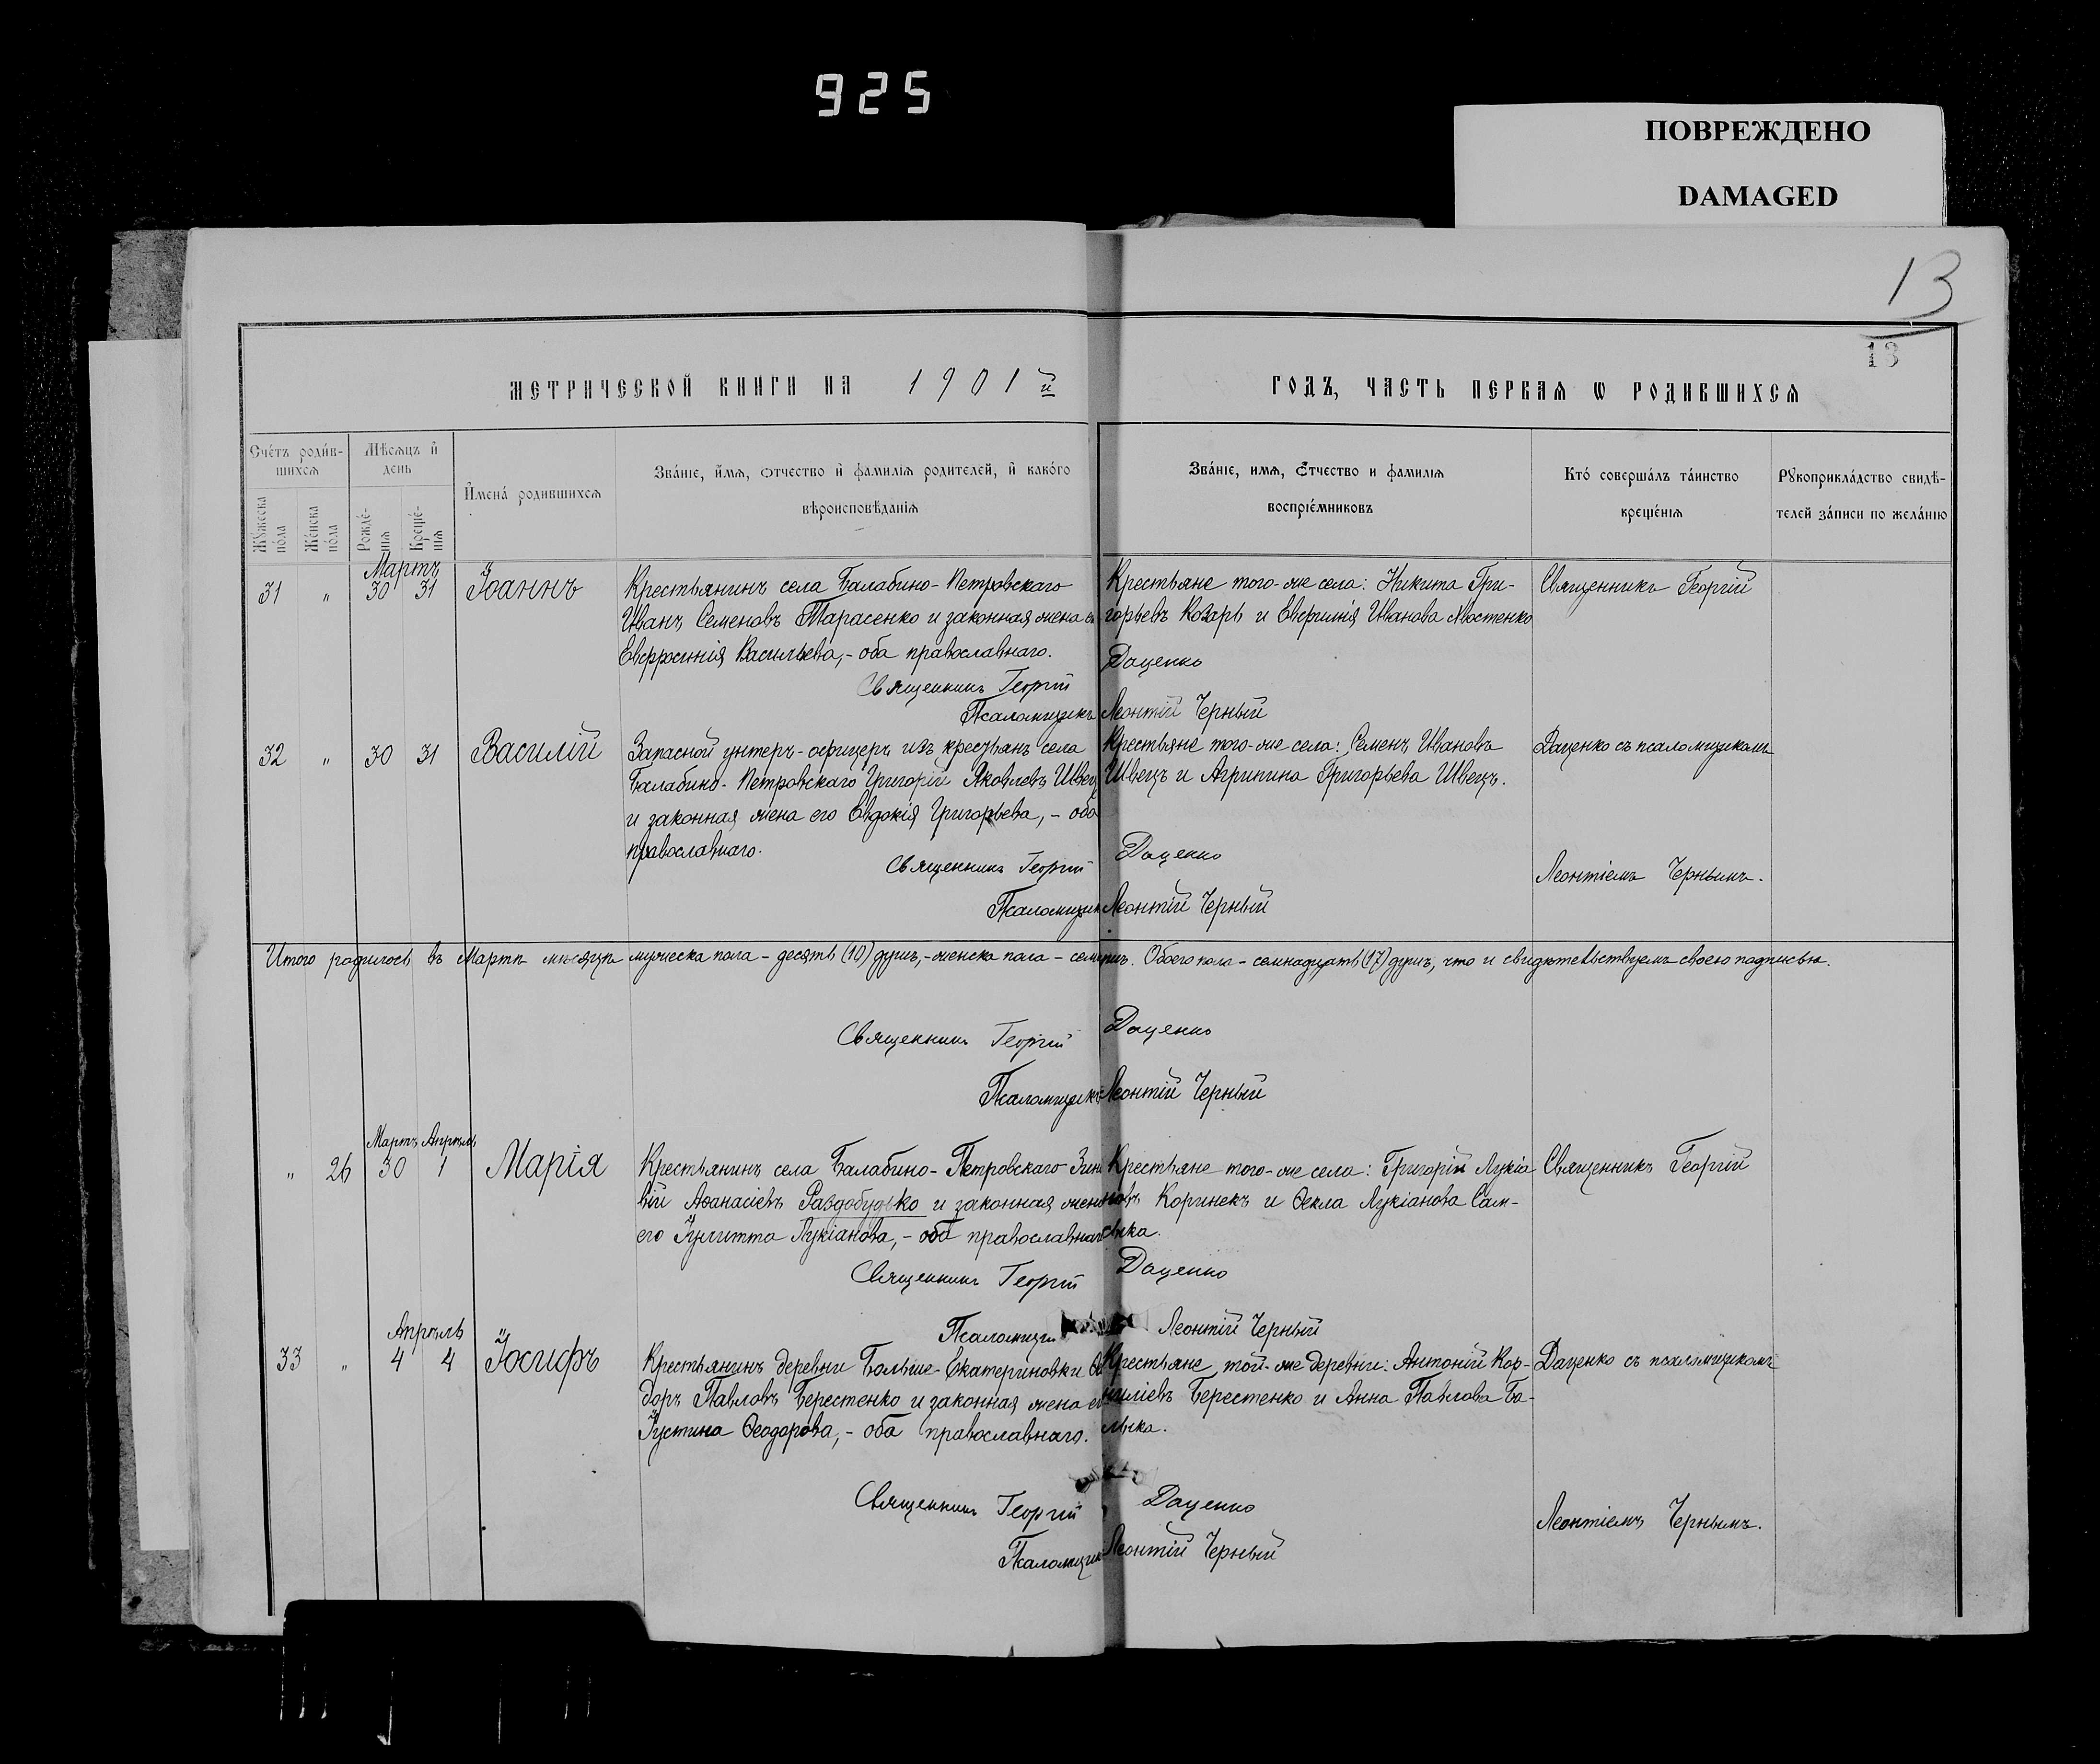 925
ПОВРЕЖДЕНО
DAMAGED
13
13
МЕТРИЧЕСКОЙ КНИГИ НА 1901й ГОДЪ, ЧАСТЬ ПЕРВАЯ Ѡ РОДИВШИХСЯ
Сче́тъ роди́в-
шихсѧ
Мѣсѧцъ и҆
день
Мꙋжеска
по́ла
Же́нска
по́ла
Рожде́-
нїѧ
Креще́-
нїѧ
И҆мена́ родившихсѧ
Зва́нїе, и҆́мѧ, ѻтчество и҆ фамилїѧ родителей, и҆ како́го
вѣроисповѣданїѧ
Зва́нїе, имѧ, Ѻтчество и фамилїѧ
воспрїе́мниковъ
Кто́ соверша́лъ та́инство
креще́нїѧ
Рꙋкоприкла́дство свидѣ-
телей за́писи по жела́нїю
Мартъ
31 " 30 31 Іоаннъ
Крестьянинъ села Балабино-Петровскаго
Иванъ Семеновъ Тарасенко и законная жена е
Евфросинія Васильева,- оба православнаго.
Священникъ Георгій Даценко
Псаломщикъ Леонтій Черный
Крестьяне того-же села: Никита Гри-
горьевъ Козарь и Евфимія Иванова
Священникъ Георгій
32 " 30 31 Василій
Запасной унтеръ-офицеръ изъ крестьянъ села
Балабино-Петровскаго Григорій Яковлевъ Швец
и законная жена его Евдокія Григорьева,- оба
православнаго.
Священникъ Георгій Даценко
Псаломщик Леонтій Черный
Крестьяне того-же села: Семенъ Ивановъ
Швецъ и Агрипина Григорьева Швецъ.
Даценко съ псаломщикомъ
Леонтіемъ Чернымъ.
Итого родилось въ Мартѣ мѣсяцѣ мужеска пола - десять (10) душъ,- женска пола - Обоего пола - семнадцать (17) душъ, что и свидѣтельствуемъ своею подписью.
Священникъ Георгій Даценко
Псаломщикъ Леонтій Черный
Мартъ Апрѣль
" 26 30 1 Марія
Крестьянинъ села Балабино-Петровскаго Зино
вій Аѳанасіевъ Раздобудько и законная жена
его Іулитта Лукіанова,- оба православнаго
Священникъ Георгій Даценко
Псаломщи Леонтій Черный
Крестьяне того-же села: Григорій Лукіа
новъ Коринекъ и Ѳекла Лукіанова Сам-
сыка.
Священникъ Георгій
Апрѣль
33 " 4 4 Іосифъ
Крестьянинъ деревни Больше-Екатериновки Ѳе
доръ Павловъ Берестенко и законная жена ег
Іустина Ѳеодорова,- оба православнаго.
Священникъ Георгій Даценко
Псаломщик Леонтій Черный
Крестьяне той-же деревни: Антоній Кор-
ниліевъ Берестенко и Анна Павлова Ба-
лыка.
Даценко съ псаломщикомъ
Леонтіемъ Чернымъ.